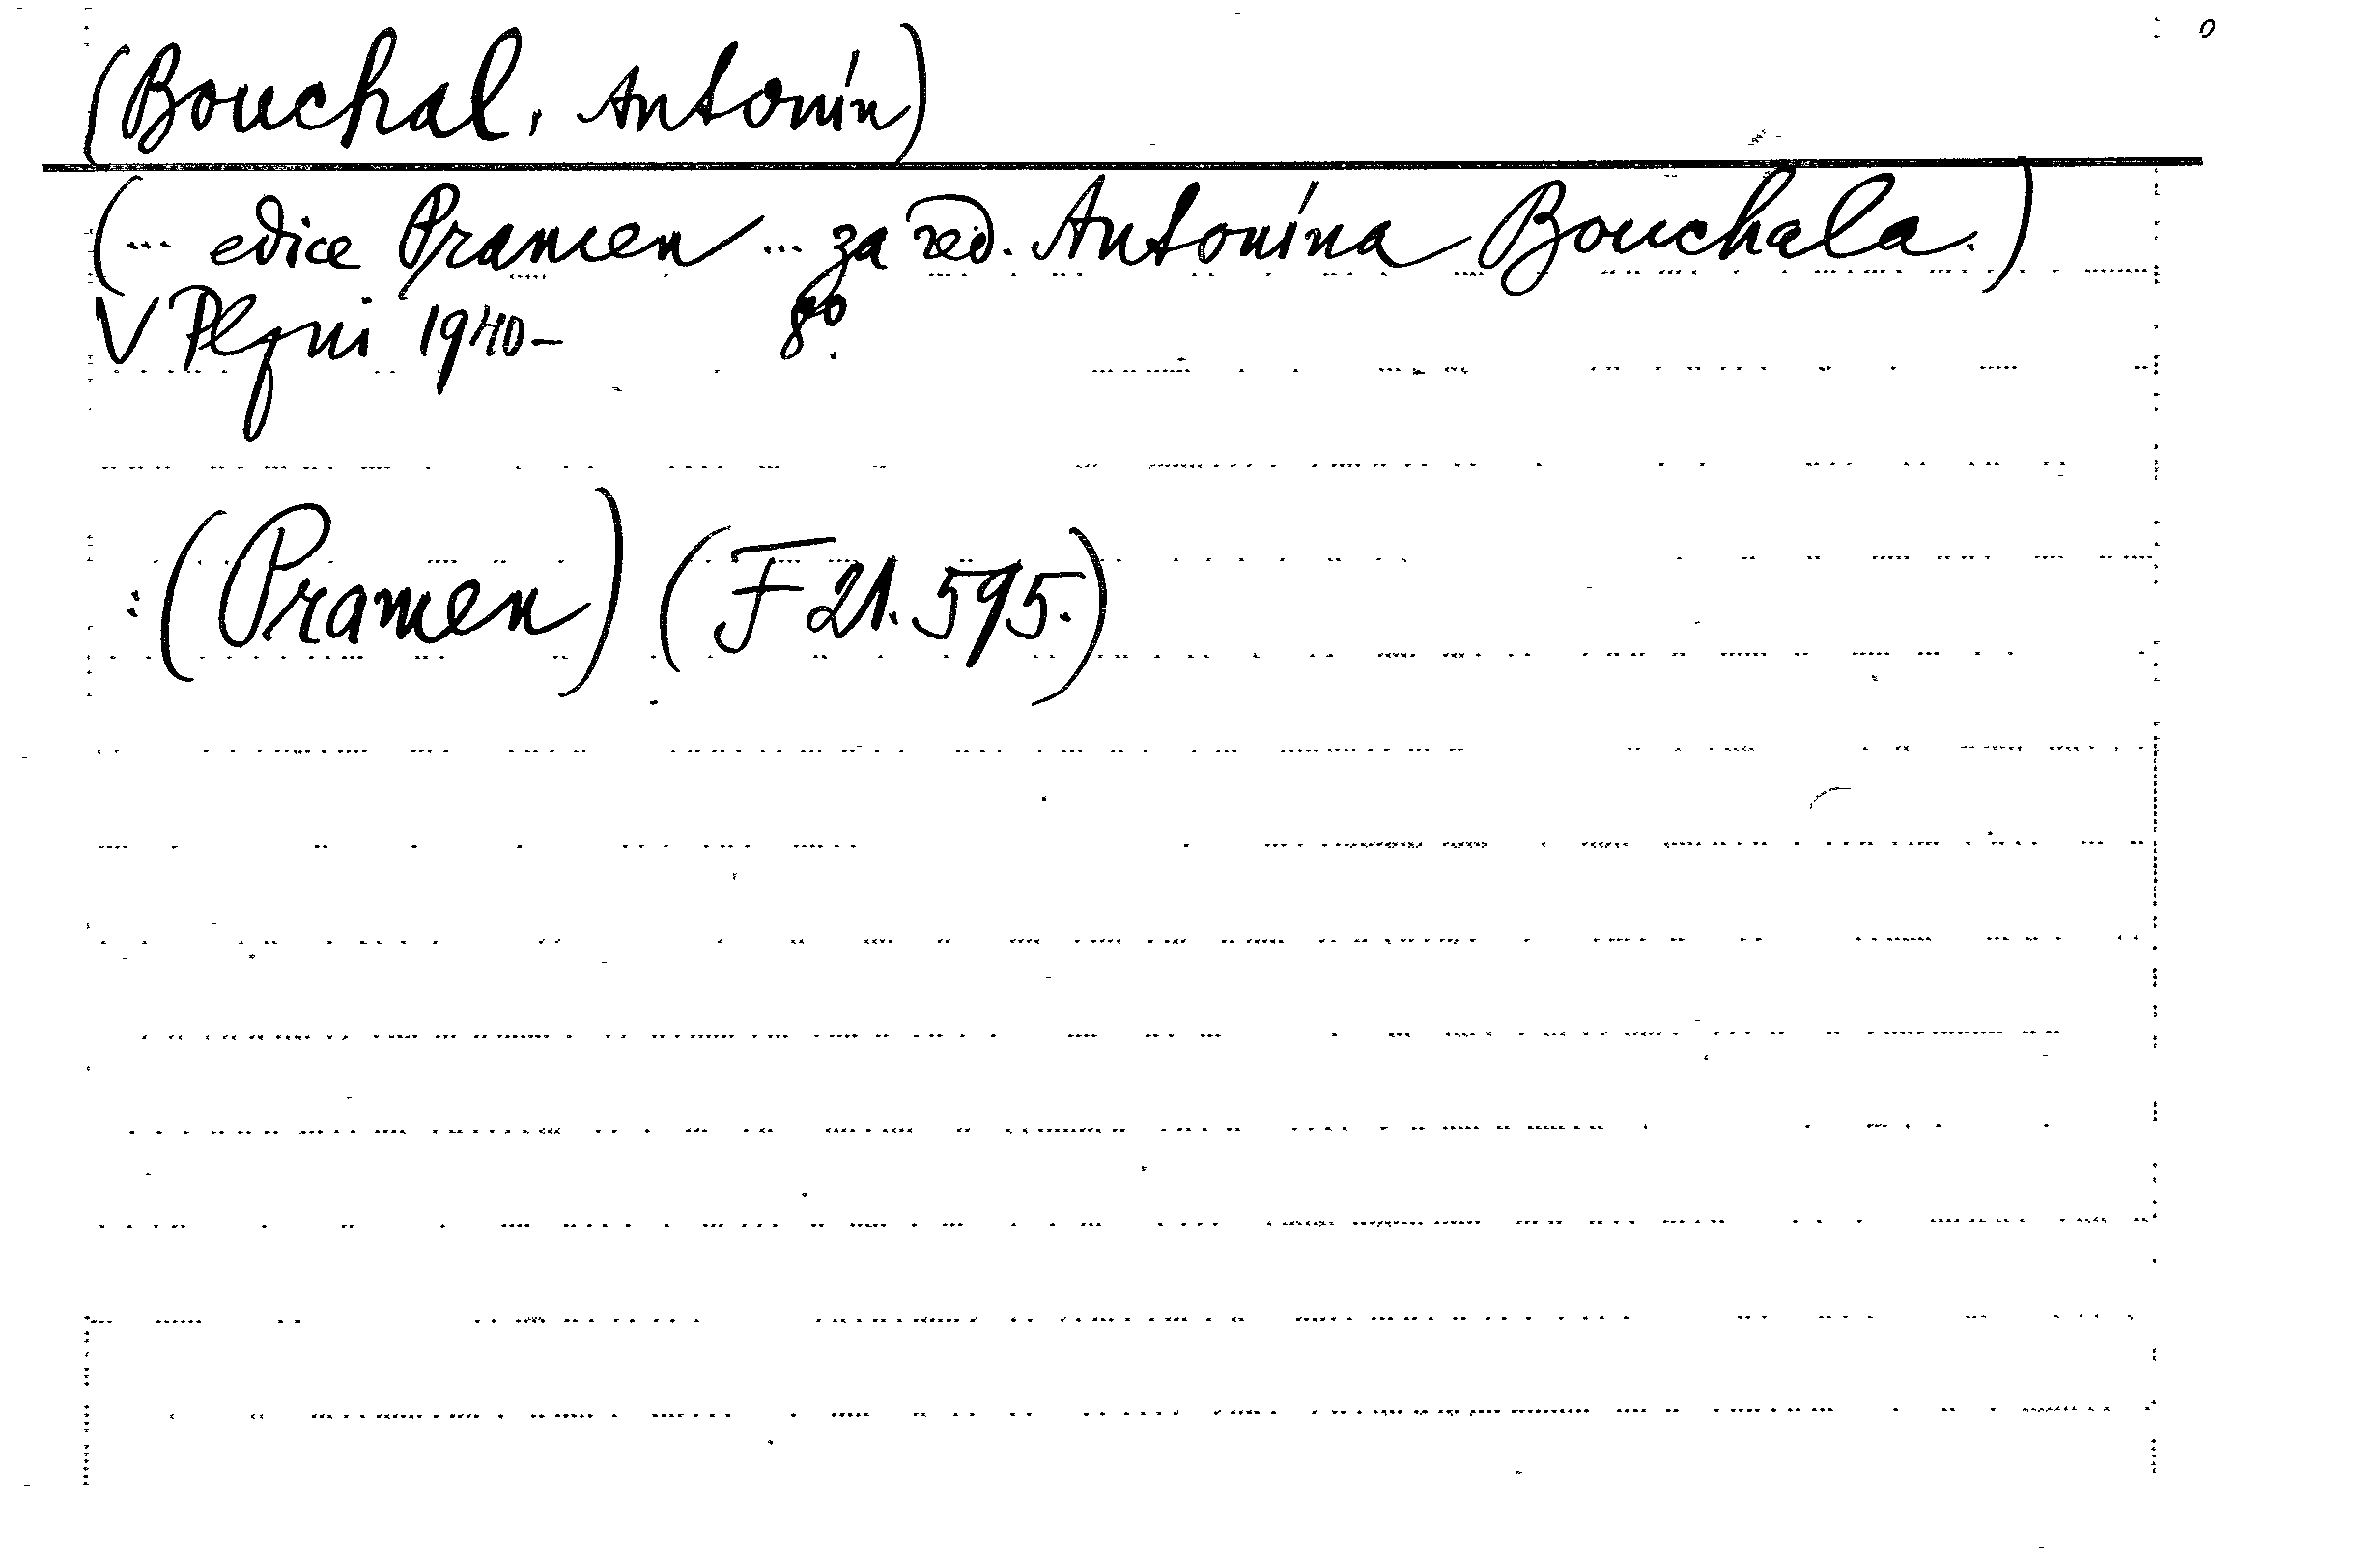 (Bouchal, Antonín)
(... edice Pramen ... za red. Antonína Bouchala.)
V Plzni 1940- 8°.
: (Pramen) (F 21.595.)